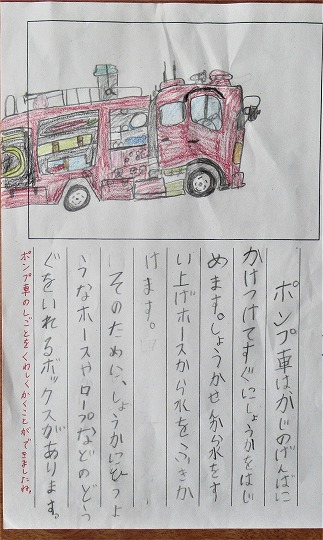 ポンプ車はかじのげんばに
かけつけてすぐにしょうかをはじ
めます。しょうかせんから水をす
い上げホースから水をふきか
けます。
そのために、しょうかにひつよ
うなホースやロープなどのどう
ぐをいれるボックスがあります。
ポンプ車のしごとをくわしくかくことができましたね。